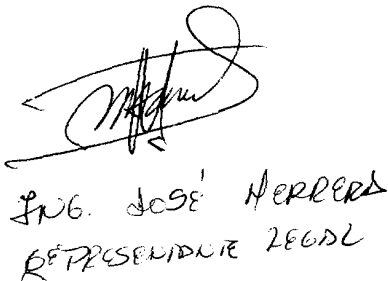 ING. JOSÉ HERRERA
REPRESENTANTE LEGAL